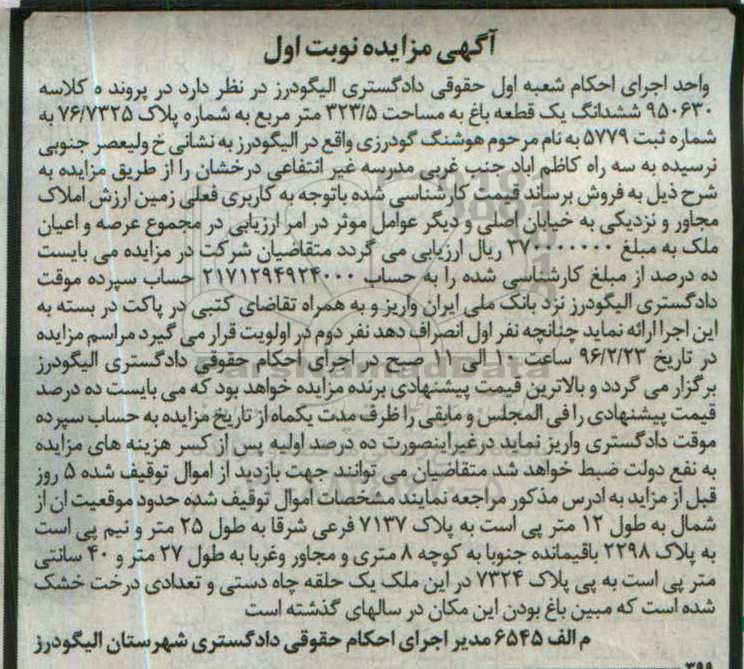 آگهی مزایده نوبت اول
واحد اجرای احکام شعبه اول حقوقی دادگستری الیگودرز در نظر دارد در پرونده ه کلاسه
۹۵۰۶۳۰ ششدانگ یک قطعه باغ به مساحت ۳۲۳/۵ متر مربع به شماره پلاک ۷۶/۷۳۲۵ به
شماره ثبت ۵۷۷۹ به نام مرحوم هوشنگ گودرزی واقع در الیگودرز به نشانی خ ولیعصر جنوبی
نرسیده به سه راه کاظم اباد جنب غربی مدرسه غیر انتفاعی درخشان را از طریق مزایده به
شرح ذیل به فروش برساند قیمت کارشناسی شده باتوجه به کاربری فعلی زمین ارزش املاک
مجاور و نزدیکی به خیابان اصلی و دیگر عوامل موثر در امر ارزیابی در مجموع عرصه و اعیان
ملک به مبلغ ریال ارزیابی می گردد متقاضیان شرکت در مزایده می بایست
ده درصد از مبلغ کارشناسی شده را به حساب ۲۱۷۱۲۹۴۹۲۴۰۰۰ حساب سپرده موقت
دادگستری الیگودرز نزد بانک ملی ایران واریز و به همراه تقاضای کتبی در پاکت در بسته به
این اجرا ارائه نماید چنانچه نفر اول انصراف دهد نفر دوم در اولویت قرار می گیرد مراسم مزایده
در تاریخ ۹۶/۲/۲۳ ساعت ۱۰ الی ۱۱ صبح در اجرای احکام حقوقی دادگستری الیگودرز
برگزار می گردد و بالاترین قیمت پیشنهادی برنده مزایده خواهد بود که می بایست ده درصد
قیمت پیشنهادی را فی المجلس و مابقی را ظرف مدت یکماه از تاریخ مزایده به حساب سپرده
موقت دادگستری واریز نماید درغیراینصورت ده درصد اولیه پس از کسر هزینه های مزایده
به نفع دولت ضبط خواهد شد متقاضیان می توانند جهت بازدید از اموال توقیف شده ۵ روز
قبل از مزاید به ادرس مذکور مراجعه نمایند مشخصات اموال توقیف شده حدود موقعیت ان از
شمال به طول ۱۲ متر پی است به پلاک ۷۱۳۷ فرعی شرقا به طول ۲۵ متر و نیم پی است
به پلاک ۲۲۹۸ باقیمانده جنوبا به کوچه ۸ متری و مجاور وغربا به طول ۲۷ متر و ۴۰ سانتی
متر پی است به پی پلاک ۷۳۲۴ در این ملک یک حلقه چاه دستی و تعدادی درخت خشک
شده است که مبین باغ بودن این مکان در سالهای گذشته است
م الف ۶۵۴۵ مدیر اجرای احکام حقوقی دادگستری شهرستان الیگودرز